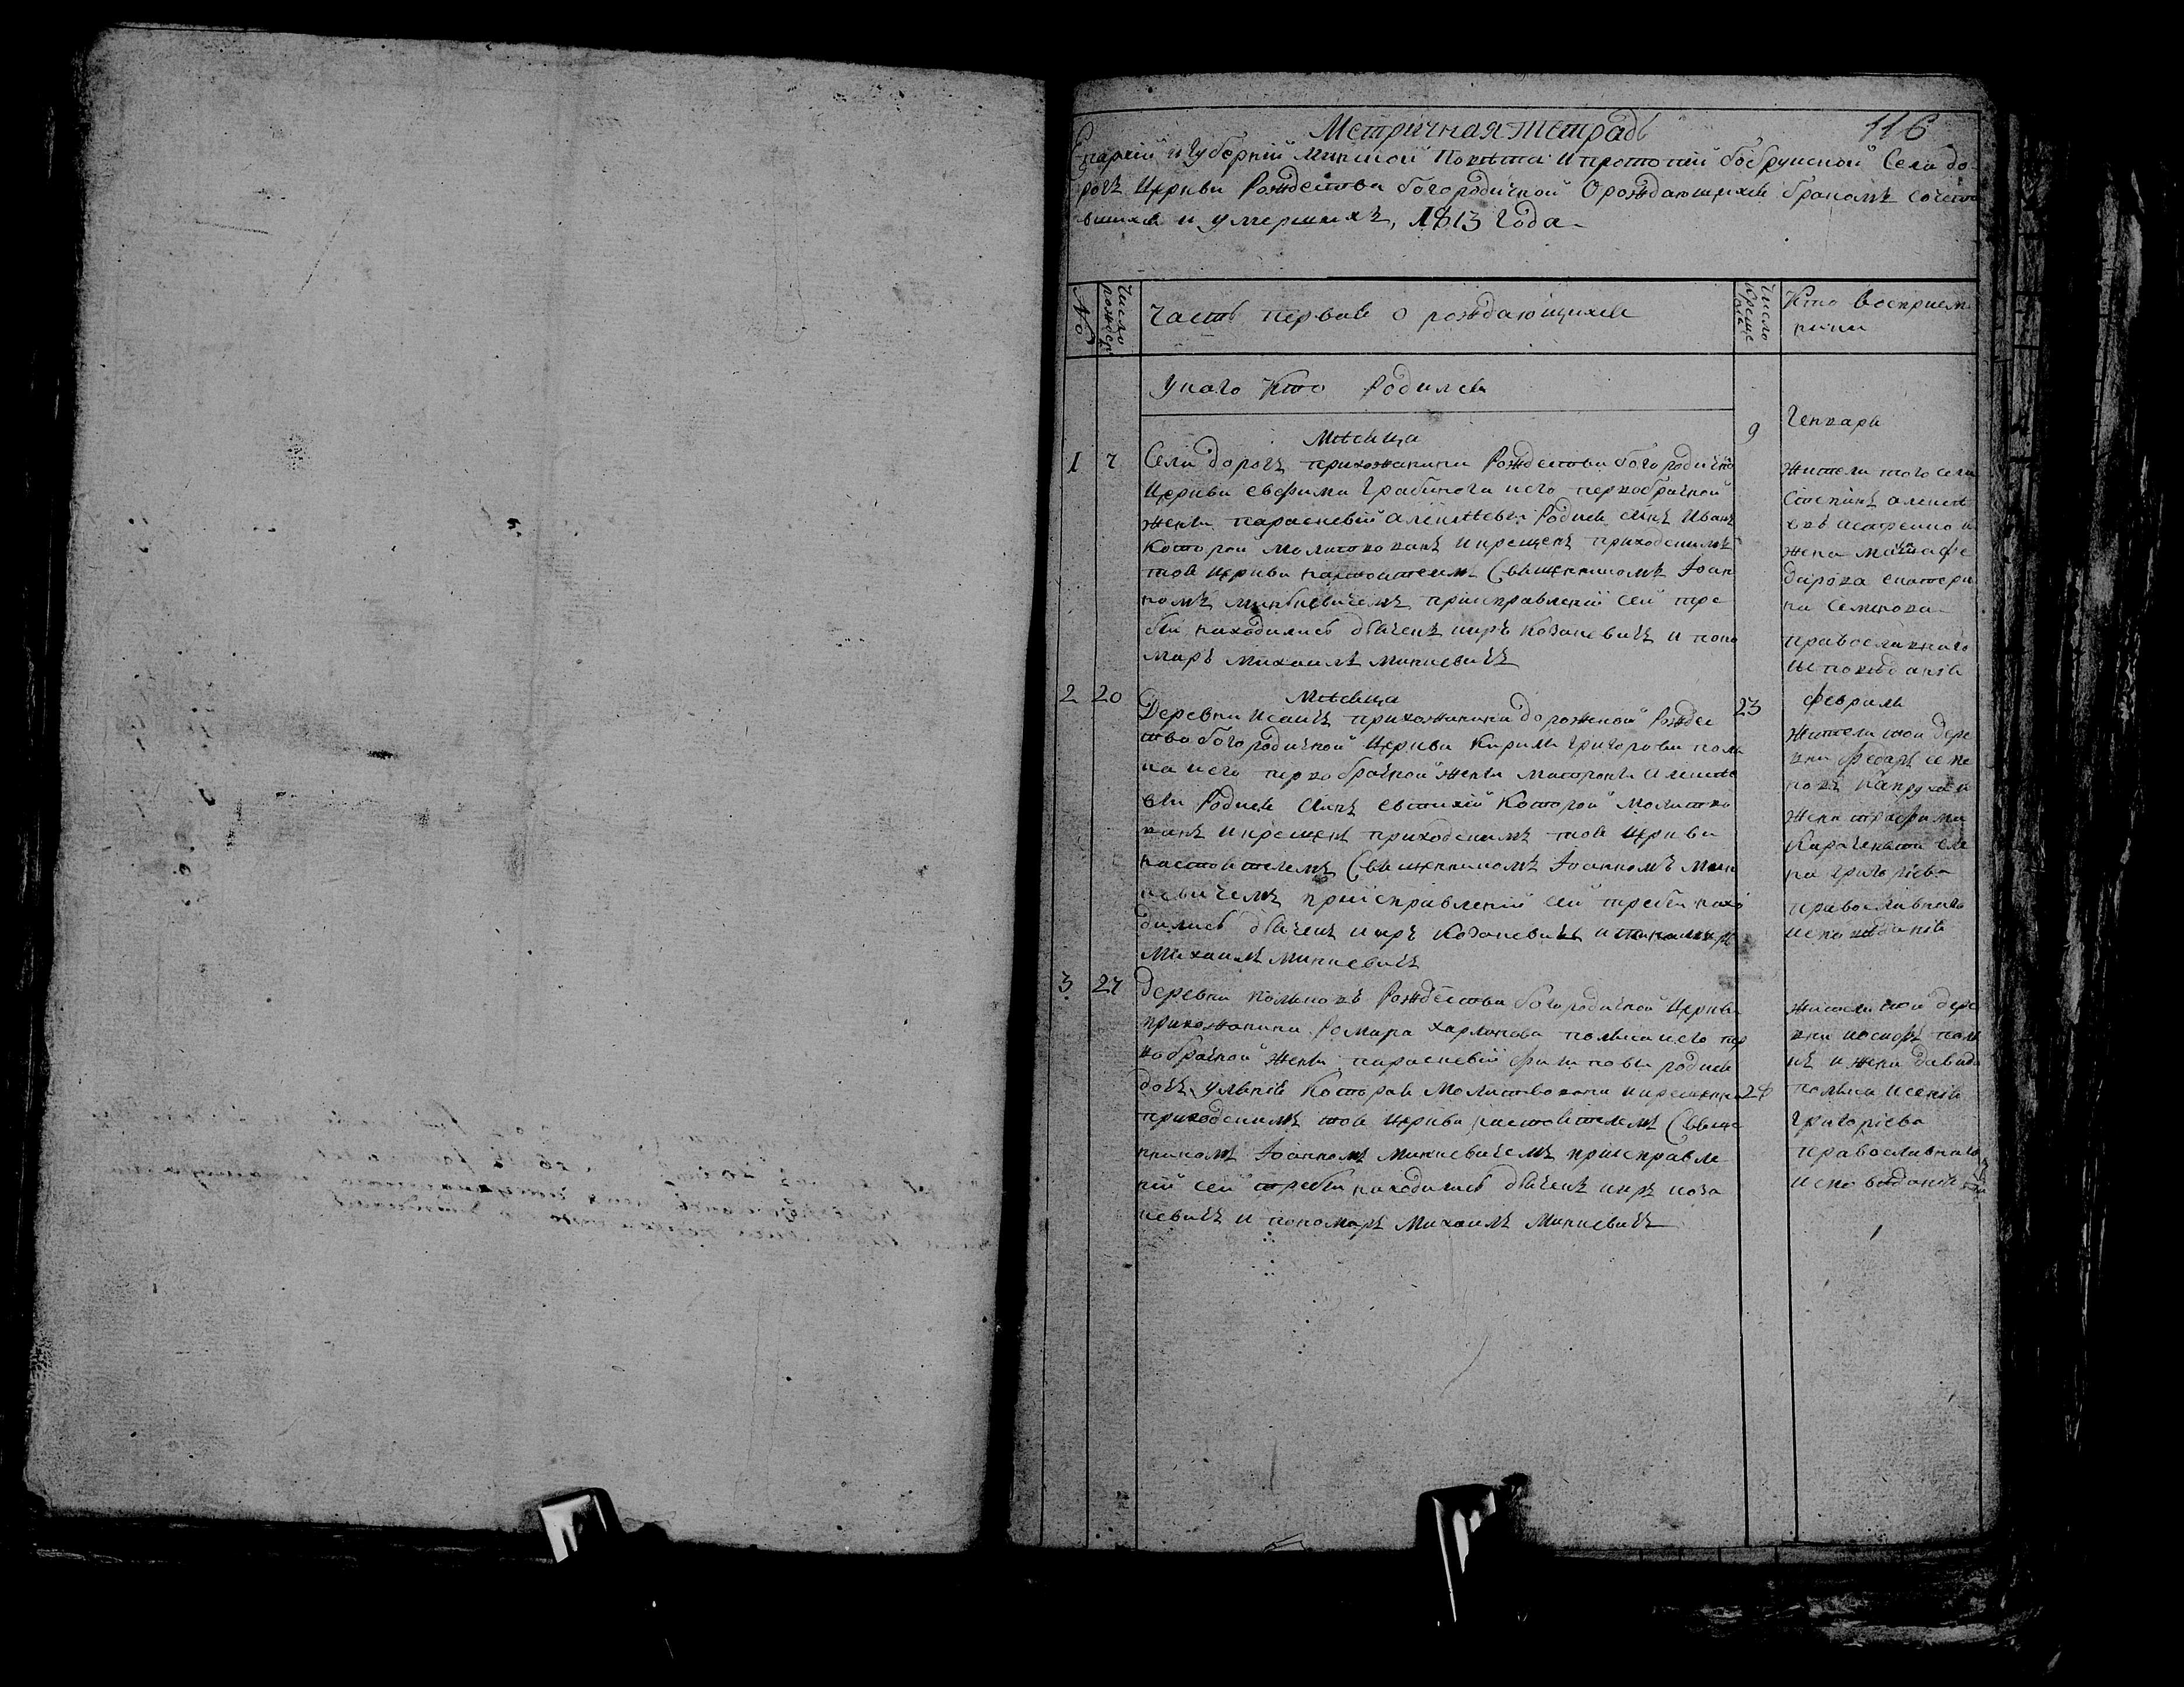 Метричная тетрадь
116
Епархіи и губерніи Минской Повѣта и протопіи бобруйской Села до
рогъ Церкви Рождества богородичной О рождающихся бракомъ сочета
вшихся и умершихъ, 1813 года
№
Число рожде
Часть первая о рождающихся
Число креще
Кто восприем
ники
У кого Кто Родился
Мѣсяца
9
Генваря
1 7 Села дорогъ прихожанина Рождества богородично
Церкви евфима и его первобрачной
жены параскевіи алексѣевы Родися сынъ Иванъ
Которои молитвованъ и крещенъ приходскимъ
тоя церкви настоятелемъ Священникомъ Іоан
номъ Минкевичемъ приисправленіи сей тре
бы находились дьячекъ киръ Козакевичъ и поно
маръ михаилъ минкевичъ
жители того села
Степанъ алексѣ
евъ и
жена
дирова екатери
на Семкова
православнаго
исповѣданія
Мѣсяца
2 20 Деревни прихожанина дорожской Рожде
ства богородичной Церкви Кирила григорева поля
ка и его первобрачной жены матроны алексѣе
вы Родися сынъ евтихій Которой молитво
ванъ и крещенъ приходскимъ тоя церкви
настоятелемъ Священникомъ Іоанномъ мин
кевичемъ приисправленіи сей требы нахо
дились дьячекъ киръ Козакевичъ и пономаръ
Михаилъ минкевичъ
23 февраля
жители тои дере
вни федоръ
жена трофима
на григоріева
православнаго
исповѣданія
3 27 деревни Рождества богородичной Церкви
прихожанина харлапова поляка и его пер
вобрачной жены параскевіи филиповы родися
дочь уліянія Которая молитвована и крещенна
приходскимъ тоя церкви настоятелемъ Священ
никомъ Іоанномъ минкевичемъ приисправле
ніи сей требы находились дьячекъ киръ коза
кевичъ и пономаръ Михаилъ Минкевичъ
28
жители тои дере
вни иосифъ поля
къ и жена давида
поляка ксенія
григоріева
православнаго
исповѣданія